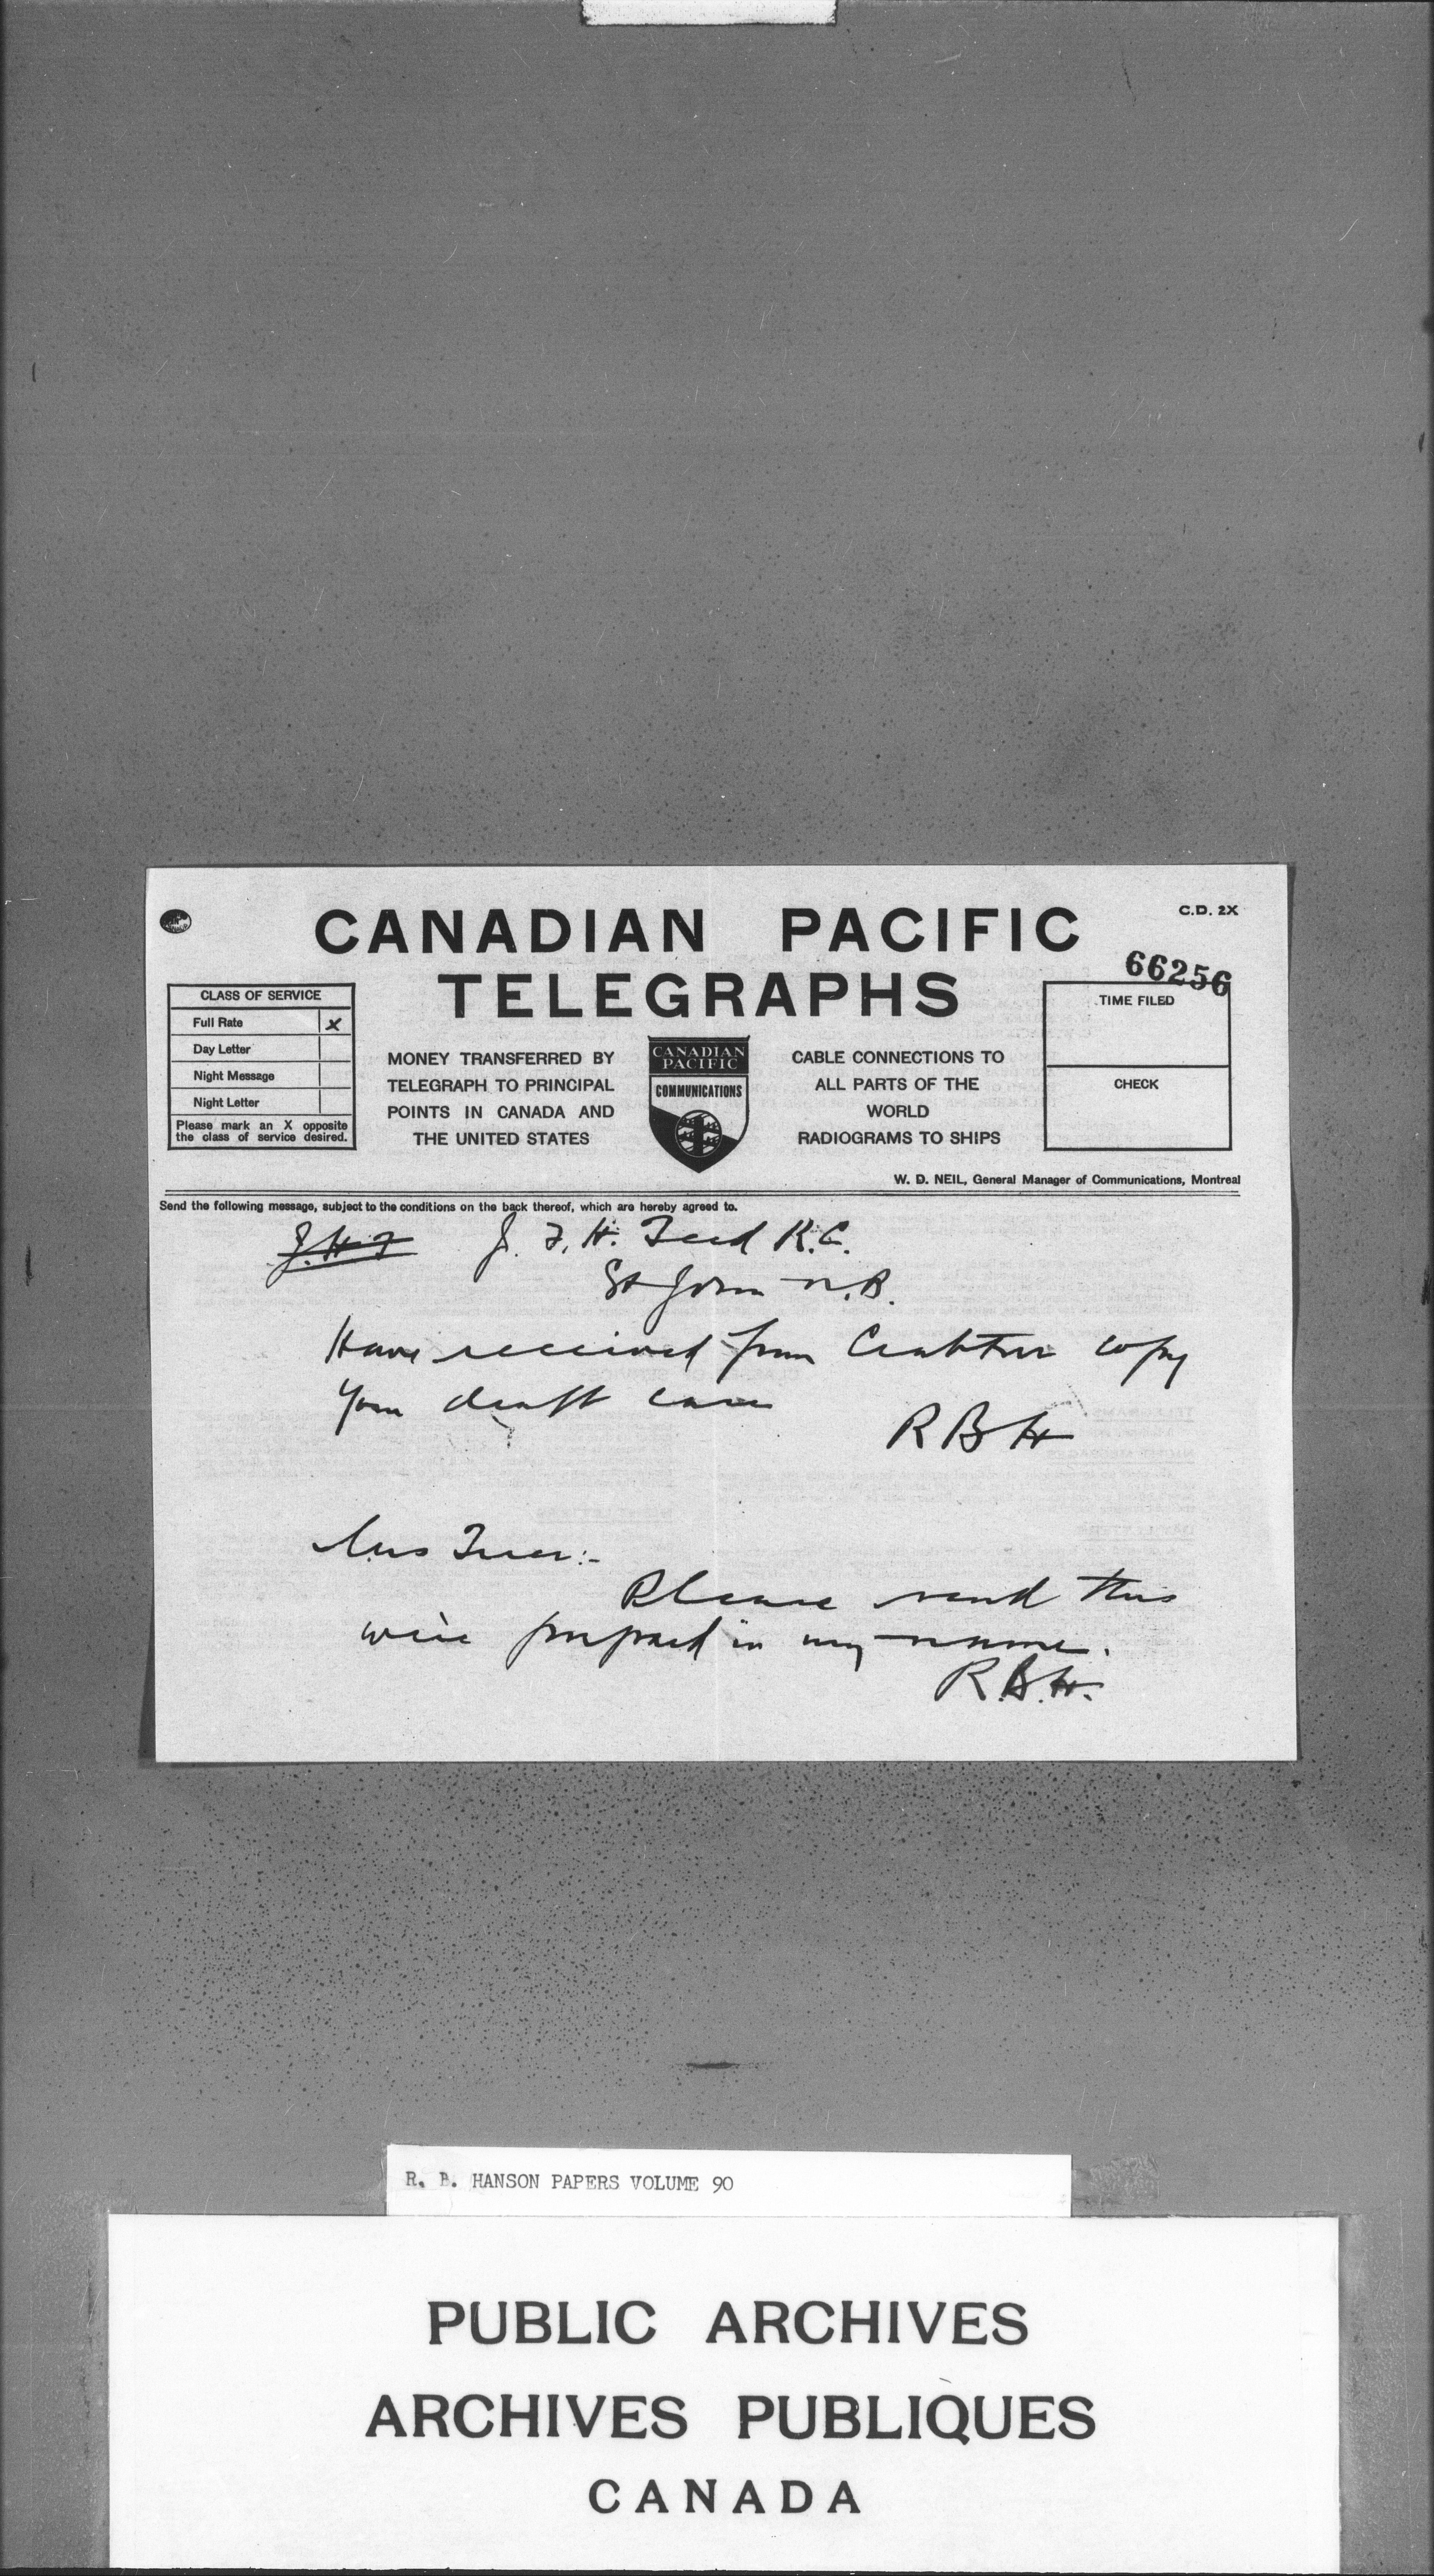 CANADIAN PACIFIC
TELEGRAPHS
C.D. 2X
66256
CLASS OF SERVICE
Full Rate X
Day Letter
Night Message
Night Letter
Please mark an X opposite
the class of service desired.
MONEY TRANSFERRED BY
TELEGRAPH TO PRINCIPAL
POINTS IN CANADA AND
THE UNITED STATES
CANADIAN
PACIFIC
COMMUNICATIONS
CABLE CONNECTIONS TO
ALL PARTS OF THE
WORLD
RADIOGRAMS TO SHIPS
TIME FILED
CHECK
W. D. NEIL, General Manager of Communications, Montreal
Send the following message, subject to the conditions on the back thereof, which are hereby agreed to.
J.H.F J. F. H. Teed K.C.
St John N.B.
Have received from Crabtree copy
your draft case
R B H
Miss
Please send this
wire prepaid in my name.
R.B.H.
R. B. HANSON PAPERS VOLUME 90
PUBLIC ARCHIVES
ARCHIVES PUBLIQUES
CANADA